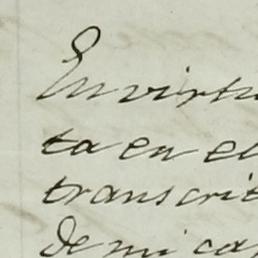 En virtu
ta en el
transcrit
de mi ca